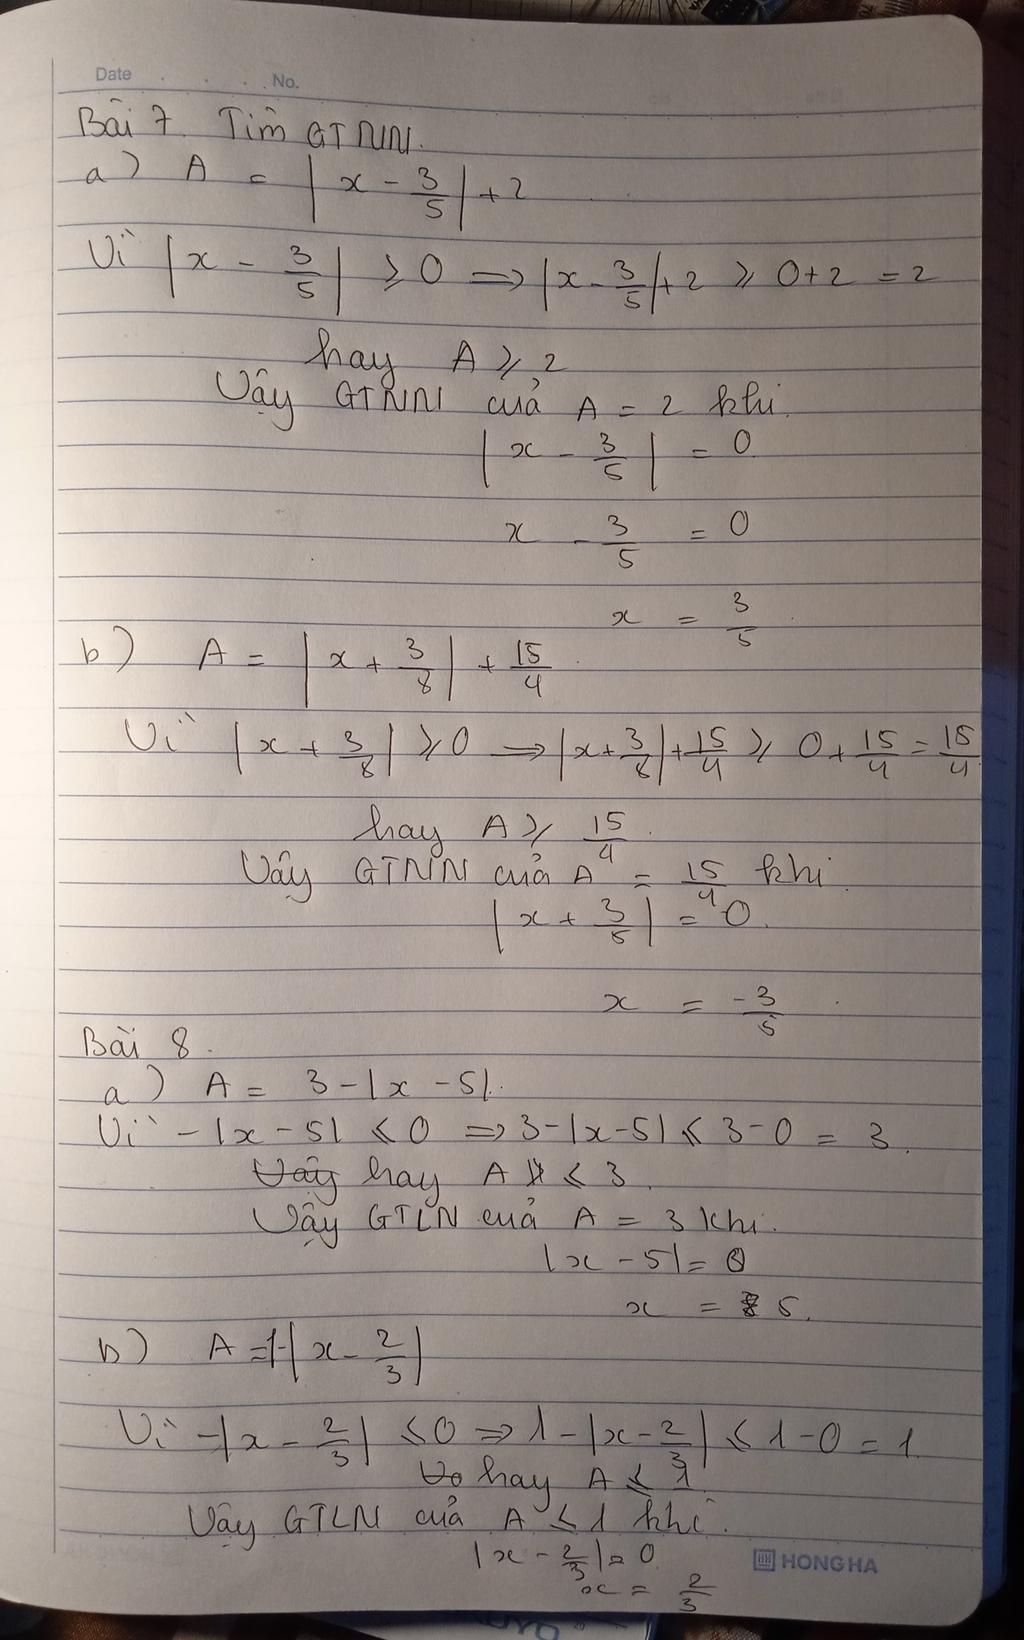 Date . . . . No.
Bài 7. Tìm GTNN.
a) A = |x - 3/5| + 2
Vì |x - 3/5| ⩾ 0 => |x - 3/5| + 2 ⩾ 0 + 2 = 2
hay A ⩾ 2
Vậy GTNN của A = 2 khi.
|x - 3/5| = 0
x - 3/5 = 0
x = 3/5.
b) A = |x + 3/8| + 15/4.
Vì |x + 3/8| ⩾ 0 => |x + 3/8| + 15/4 ⩾ 0 + 15/4 = 15/4
hay A ⩾ 15/4.
Vậy GTNN của A = 15/4 khi.
|x + 3/5| = 0.
x = -3/5.
Bài 8.
a) A = 3 - |x - 5|.
Vì -|x - 5| ⩽ 0 => 3 - |x - 5| ⩽ 3 - 0 = 3.
Vậy hay A ⩽ 3.
Vậy GTLN của A = 3 khi.
|x - 5| = 0
x = 5.
b) A = 1 - |x - 2/3|
Vì -|x - 2/3| ⩽ 0 => 1 - |x - 2/3| ⩽ 1 - 0 = 1.
hay A ⩽ 1
Vậy GTLN của A ⩽ 1 khi.
|x - 2/3| = 0.
x = 2/3
HONG HA